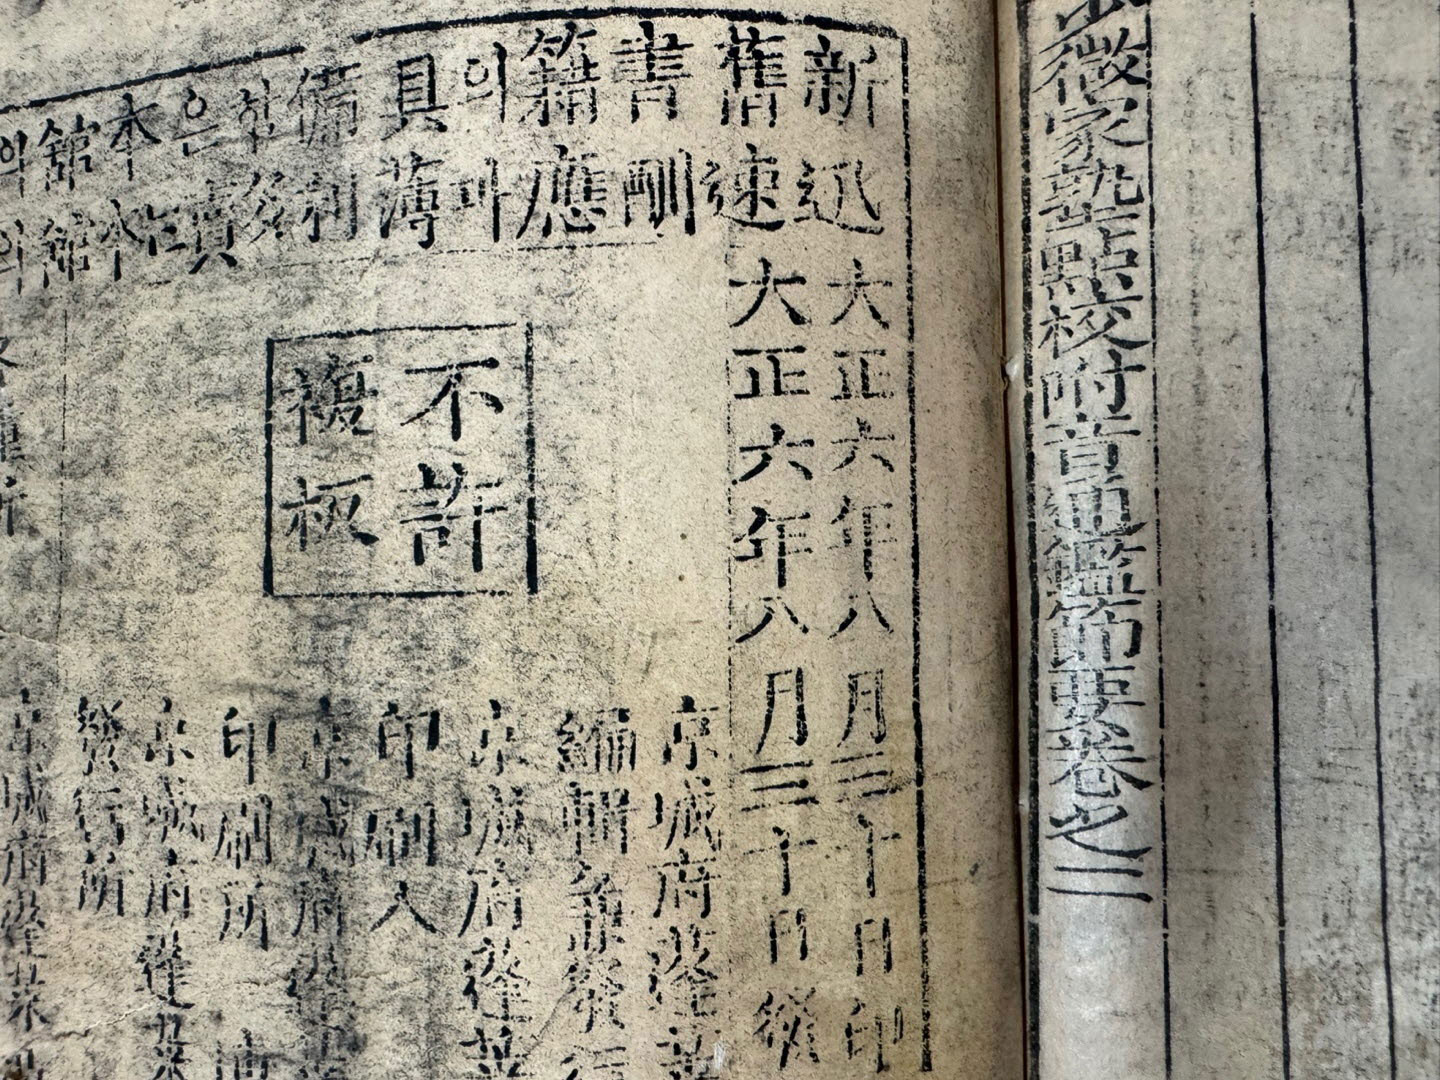 微家塾點校附音通鑑節要卷之三
新舊書籍의具備함은本舘의
迅速酬應과薄利發賣 本舘의
大正六年八月三十日印
大正六年八月三十日發
不許
複板
京城府蓬萊
編輯兼發行
京城府蓬萊
印刷人
京城府蓬萊
印刷所
京城府蓬萊
發行所
京城府蓬萊